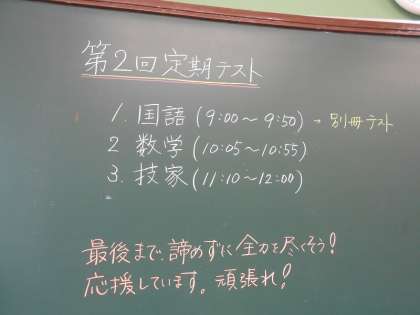 第2回定期テスト
1. 国語 (9:00～9:50) → 別冊テスト
2 数学 (10:05～10:55)
3. 技家 (11:10～12:00)
最後まで、諦めずに全力を尽くそう!
応援しています。頑張れ!